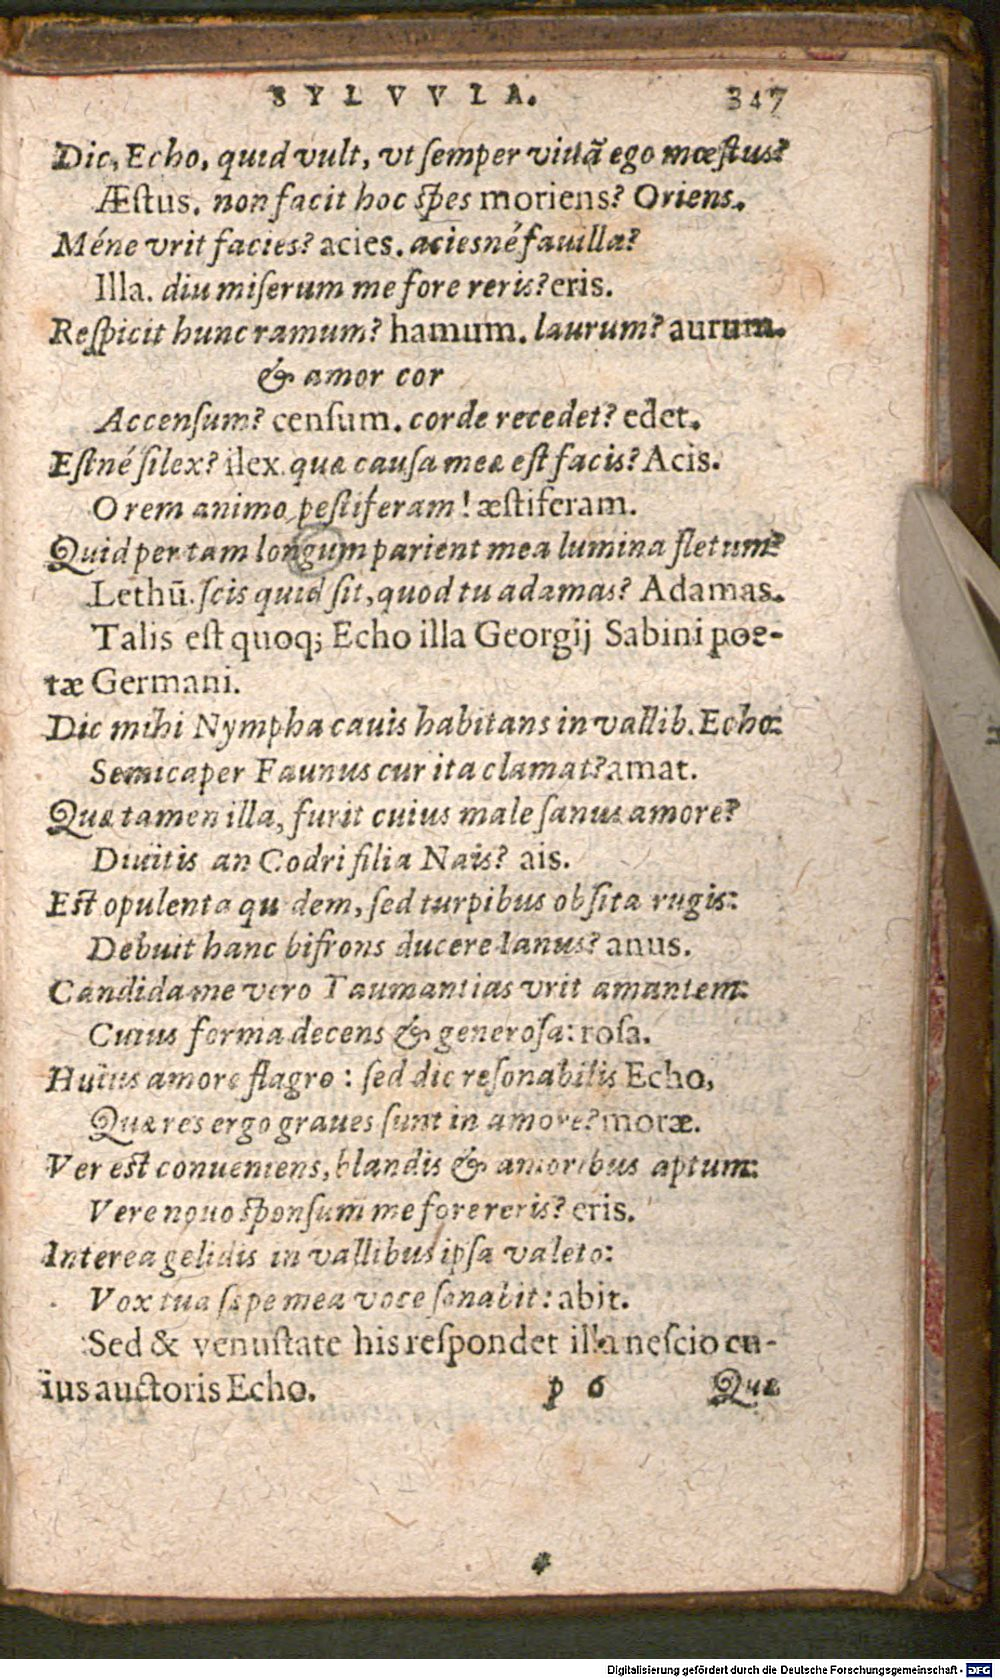 SYLVVLA. 347
Dic, Echo, quid vult, vt ſemper viuã ego mœſtus?
Æſtus. non facit hoc ſpes moriens? Oriens.
Méne vrit facies? acies. aciesné fauilla?
Illa. diu miſerum me fore reris? eris.
Reſpicit hunc ramum? hamum. laurum? aurum.
& amor cor
Accenſum? cenſum. corde recedet? edet.
Eſtné ſilex? ilex. quæ cauſa meæ eſt facis? Acis.
O rem animo peſtiferam! æſtiferam.
Quid per tam longum parient mea lumina fletum?
Lethũ. ſcis quid ſit, quod tu adamas? Adamas.
Talis eſt quoq; Echo illa Georgij Sabini poe-
tæ Germani.
Dic mihi Nympha cauis habitans in vallib. Echo:
Semicaper Faunus cur ita clamat? amat.
Quæ tamen illa, furit cuius male ſanus amore?
Diuitis an Codri filia Nais? ais.
Eſt opulenta qu dem, ſed turpibus obſita rugis:
Debuit hanc bifrons ducere Ianus? anus.
Candida me vero Taumantias vrit amantem:
Cuius forma decens & generoſa: roſa.
Huius amore flagro: ſed dic reſonabilis Echo,
Quæ res ergo graues ſunt in amore? moræ.
Ver eſt conueniens, blandis & amoribus aptum:
Vere nouo ſponſum me fore reris? eris.
Interea gelidis in vallibus ipſa valeto:
Vox tua ſæpe mea voce ſonabit: abit.
Sed & venuſtate his reſpondet illa neſcio cu-
ius auctoris Echo. p 6 Quæ
Digitalisierung gefördert durch die Deutsche Forschungsgemeinschaft - DFG